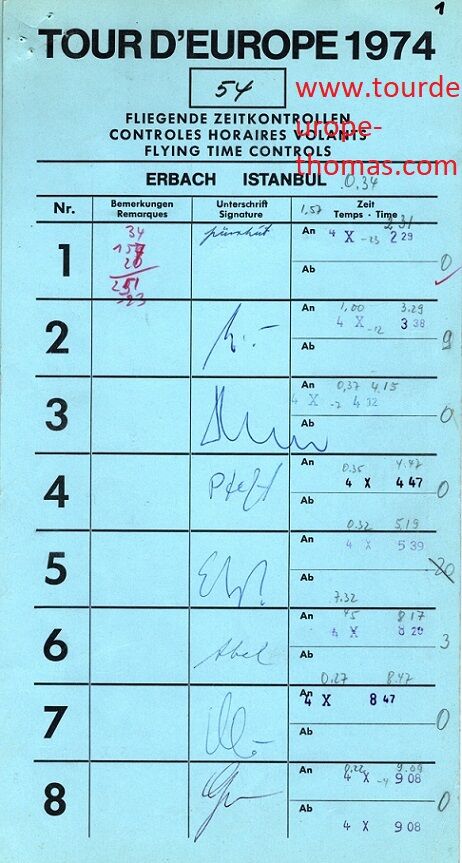 1
TOUR D'EUROPE 1974
54
www.tourde
urope-
thomas.com
FLIEGENDE ZEITKONTROLLEN
CONTROLES HORAIRES VOLANTS
FLYING TIME CONTROLS
ERBACH ISTANBUL 0.34
Nr. Bemerkungen Unterschrift Zeit
Remarques Signature 1,57 Temps · Time
1 34 An 4 X -23 2 29 2,31
Ab 0
251
-23
2 An 1,00 3.29
4 X -12 3 38
Ab 9
3 An 0,37 4,15
4 X -2 4 12
Ab 0
4 An 0.35 4.47
4 X 4 47
Ab 0
0.32 5,19
5 An 4 X 5 39
20
Ab
7.32
6 Abel An 45 8 17
4 X 8 20
Ab 3
0.27 8.47
7 An 4 X 8 47
Ab 0
8 An 0.22 9.09
4 X -4 9 08
Ab 0
4 X 9 08